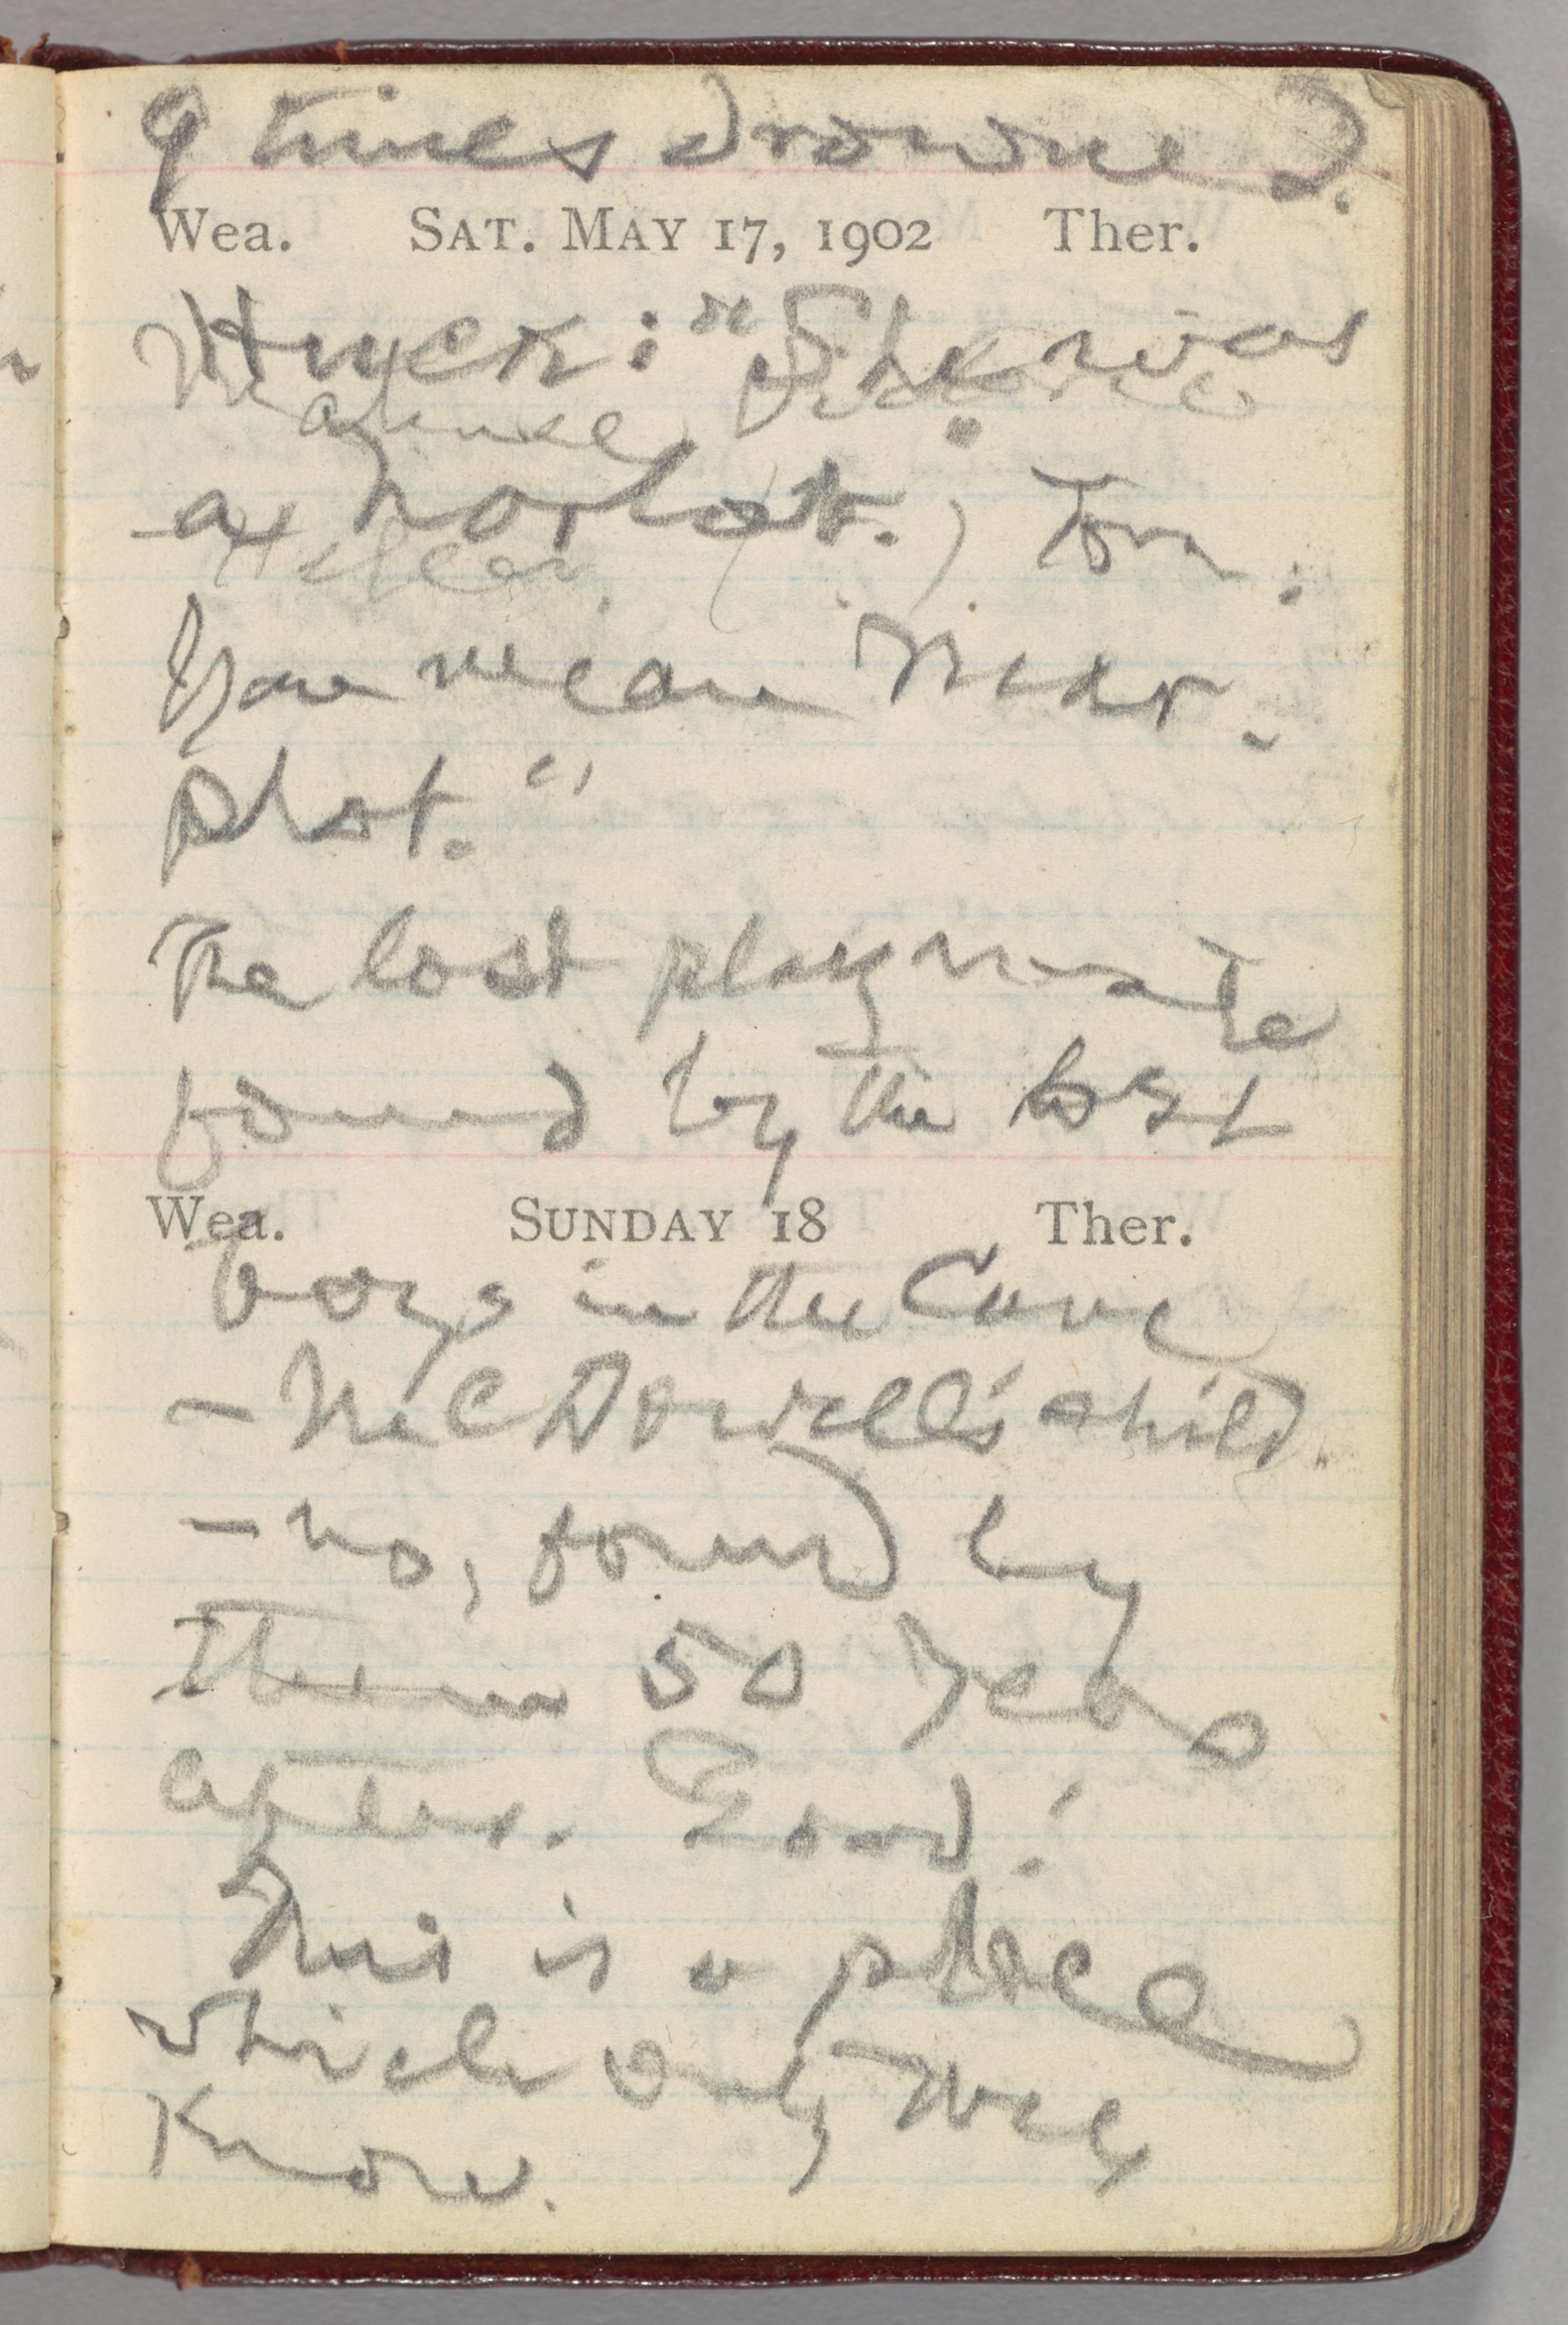 9 times drowned.
Wea. SAT. MAY 17, 1902 Ther.
Huck: "She was
a harlot.) Tom:
You mean mar-
plot."
The lost playmate
found by the lost
Wea. SUNDAY 18 Ther.
boys in the Cave
— McDowell's child.
— no, found by
them 50 years
after. Good!
This is a place
which only we
know.